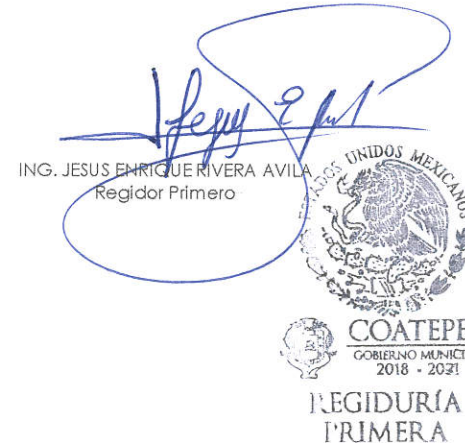 ING. JESUS ENRIQUE RIVERA AVILA
Regidor Primero
UNIDOS MEXICANOS
GOBIERNO
2018 - 2021
REGIDURÍA
PRIMERA